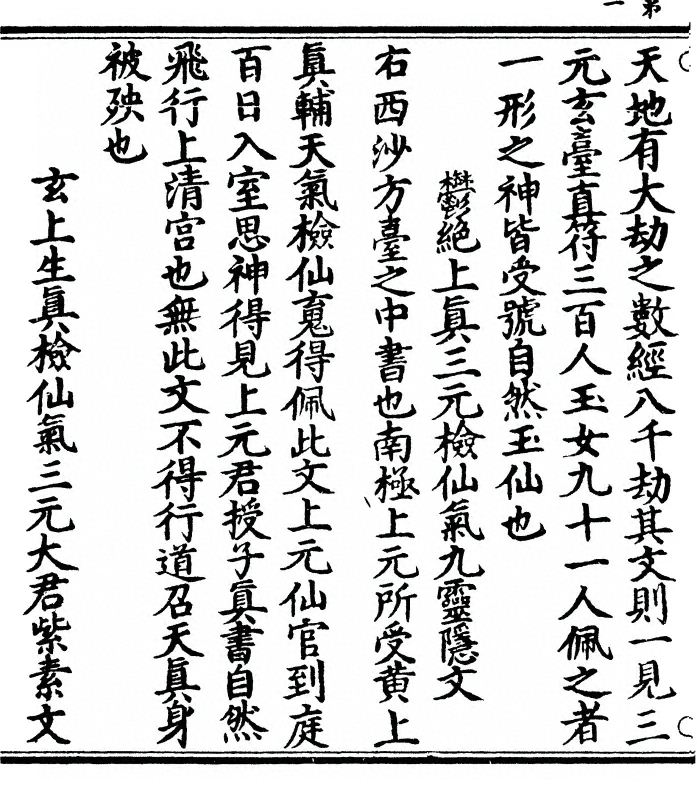 第一
天地有大劫之數經八千劫其文則一見三
元玄臺真符三百人玉女九十一人佩之者
一形之神皆受號自然玉仙也
鬱絕上眞三元檢仙氣九靈隱文
右西沙方臺之中書也南極上元所受黃上
眞輔天氣檢仙嵬得佩此文上元仙官到庭
百日入室思神得見上元君授子眞書自然
飛行上清宮也無此文不得行道召天眞身
被殃也
玄上生眞檢仙氣三元大君紫素文